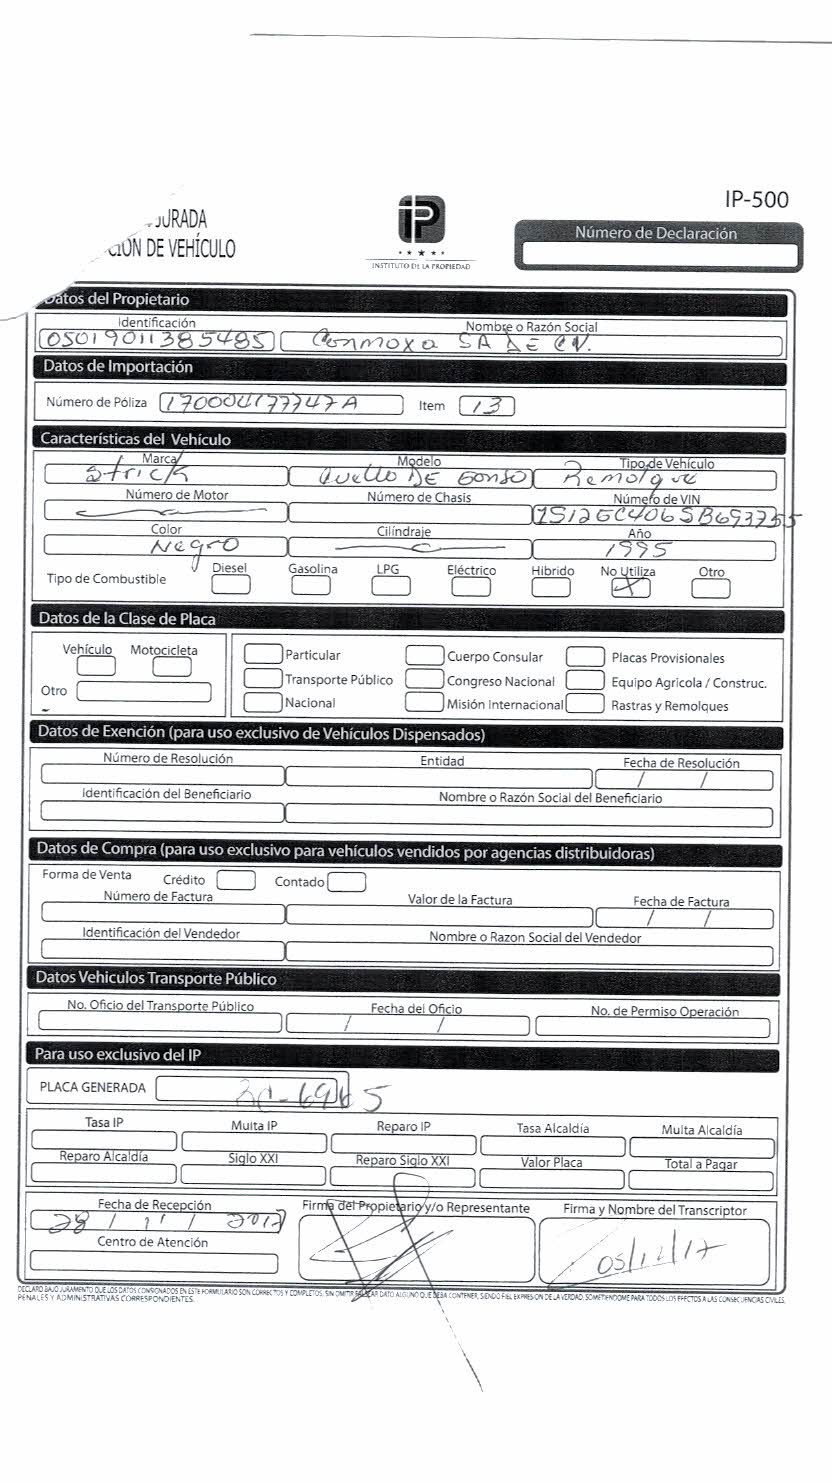 IP-500
JURADA
CIÓN DE VEHÍCULO
IP
INSTITUTO DE LA PROPIEDAD
Número de Declaración
Datos del Propietario
Identificación Nombre o Razón Social
05019011385485 Conmoxa SA DE CV.
Datos de Importación
Número de Póliza 170004177747A Item 13
Características del Vehículo
Marca Modelo Tipo de Vehículo
Strick Cuello DE Ganso Remolque
Número de Motor Número de Chasis Número de VIN
1S12GC406SB693755
Color Cilíndraje Año
Negro 1995
Tipo de Combustible Diesel Gasolina LPG Eléctrico Hibrido No Utiliza Otro
X
Datos de la Clase de Placa
Vehículo Motocicleta
Particular Cuerpo Consular Placas Provisionales
Transporte Público Congreso Nacional Equipo Agricola / Construc.
Otro
Nacional Misión Internacional Rastras y Remolques
Datos de Exención (para uso exclusivo de Vehículos Dispensados)
Número de Resolución Entidad Fecha de Resolución
/ /
Identificación del Beneficiario Nombre o Razón Social del Beneficiario
Datos de Compra (para uso exclusivo para vehículos vendidos por agencias distribuidoras)
Forma de Venta Crédito Contado
Número de Factura Valor de la Factura Fecha de Factura
/ /
Identificación del Vendedor Nombre o Razon Social del Vendedor
Datos Vehiculos Transporte Público
No. Oficio del Transporte Público Fecha del Oficio No. de Permiso Operación
/ /
Para uso exclusivo del IP
PLACA GENERADA
Tasa IP Multa IP Reparo IP Tasa Alcaldía Multa Alcaldía
Reparo Alcaldía Siglo XXI Reparo Siglo XXI Valor Placa Total a Pagar
Fecha de Recepción Firma del Propietario y/o Representante Firma y Nombre del Transcriptor
28 / 11 / 2017
Centro de Atención
05/12/17
DECLARO BAJO JURAMENTO QUE LOS DATOS CONSIGNADOS EN ESTE FORMULARIO SON CORRECTOS Y COMPLETOS, SIN OMITIR FALSEAR DATO ALGUNO QUE DEBA CONTENER, SIENDO FIEL EXPRESION DE LA VERDAD, SOMETIENDOME PARA TODOS LOS EFECTOS A LAS CONSECUENCIAS CIVILES,
PENALES Y ADMINISTRATIVAS CORRESPONDIENTES.